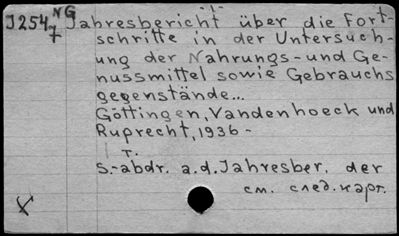 J254 NG Jahresbericht über die Fort-
7 schritte in der Untersuch-
ung der Nahrungs-und Ge-
nussmittel sowie Gebrauchs
gegenstände...
Göttingen, Vandenhoeck und
Ruprecht, 1936 -
т.
S.-abdr. a.d. Jahresber. der
см. след. карт.